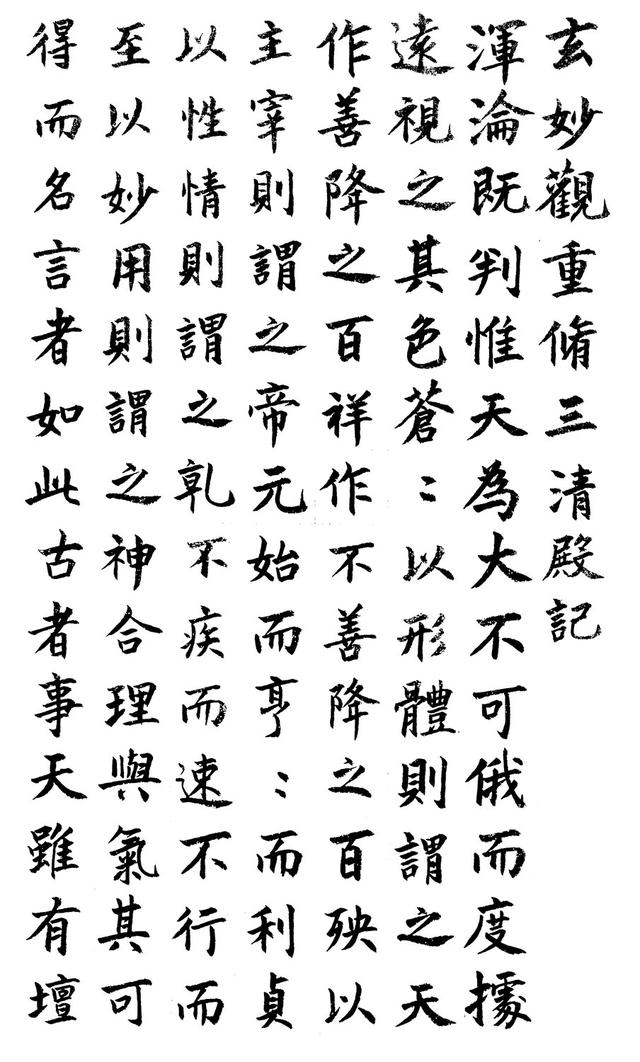 玄妙觀重脩三清殿記
渾淪既判惟天為大不可俄而度據
遠視之其色蒼〻以形體則謂之天
作善降之百祥作不善降之百殃以
主宰則謂之帝元始而亨〻而利貞
以性情則謂之乹不疾而速不行而
至以妙用則謂之神合理與氣其可
得而名言者如此古者事天雖有壇